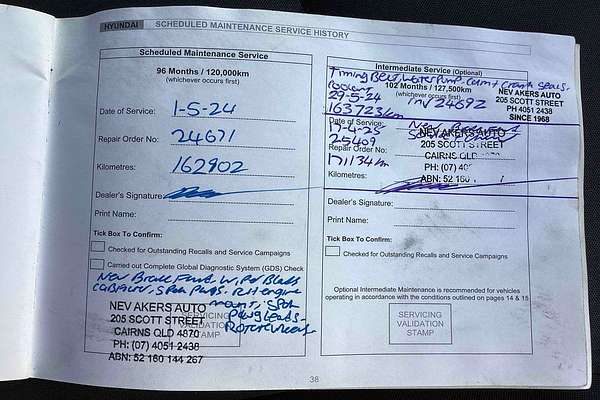 HYUNDAI SCHEDULED MAINTENANCE SERVICE HISTORY
Scheduled Maintenance Service
96 Months / 120,000km
(whichever occurs first)
Date of Service: 1-5-24
Repair Order No: 24671
Kilometres: 162902
Dealer's Signature:
Print Name:
Tick Box To Confirm:
Checked for Outstanding Recalls and Service Campaigns
Carried out Complete Global Diagnostic System (GDS) Check
New Brake Fluid, Wiper Blades
Spark Plugs. engine
mount,
Plug Leads-
NEV AKERS AUTO
205 SCOTT STREET
CAIRNS QLD 4870
PH: (07) 4051 2438
ABN: 52 160 144 267
SERVICING
VALIDATION
STAMP
Intermediate Service (Optional)
Timing Belt, Water Pump Cam + Crank Seals-
102 Months / 127,500km
(whichever occurs first)
29-5-24 INV 24692
163723km
NEV AKERS AUTO
205 SCOTT STREET
PH 4051 2438
SINCE 1968
Date of Service:
17-4-25
Repair Order No:
25409
171134km
Kilometres:
NEV AKERS AUTO
205 SCOTT STREET
CAIRNS QLD 4870
PH: (07)
ABN: 52 160
Dealer's Signature:
Print Name:
Tick Box To Confirm:
Checked for Outstanding Recalls and Service Campaigns
Optional Intermediate Maintenance is recommended for vehicles
operating in accordance with the conditions outlined on pages 14 & 15
SERVICING
VALIDATION
STAMP
38